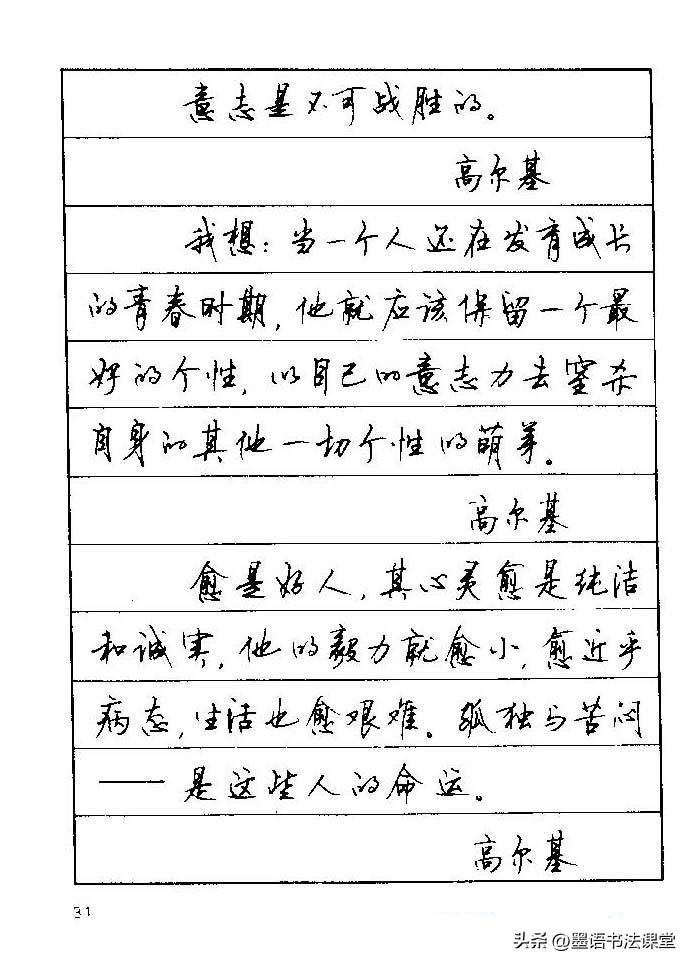 意志是不可战胜的。
高尔基
我想：当一个人还在发育成长
的青春时期，他就应该保留一个最
好的个性，以自己的意志力去窒杀
自身的其他一切个性的萌芽。
高尔基
愈是好人，其心灵愈是纯洁
和诚实，他的毅力就愈小，愈近乎
病态，生活也愈艰难。孤独与苦闷
——是这些人的命运。
高尔基
31
头条@墨语书法课堂